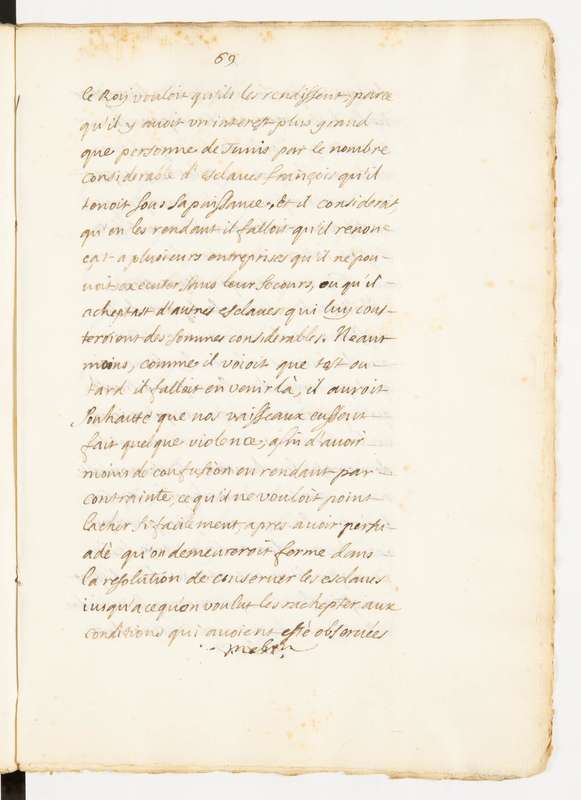 69
le Roy vouloit qu'ils les rendissent, parce
qu'il y avoit vn interest plus grand
que personne de Tunis par le nombre
considerable d'esclaves françois qu'il
tenoit sous sa puissance, Et il considerait,
qu'en les rendant il falloit qu'il renon=
çat a plusieurs entreprises qu'il ne pou-
voit executer sans leur secours, ou qu'il
acheptast d'autres esclaves qui luy cous-
teroient des sommes considerables. Neant
moins, comme il voioit que tost ou
tard il falloit en venir là, il auroit
souhaitté que nos vaisseaux eussent
fait quelque violence, afin d'avoir
moins de confusion en rendant par
contrainte, ce qu'il ne vouloit point
lacher si facilement, apres avoir persu-
adé qu'on demeureroit ferme dans
la resolution de conserver les esclaves
iusqu'a ce qu'on voulut les rachepter aux
conditions qui avoient esté observées